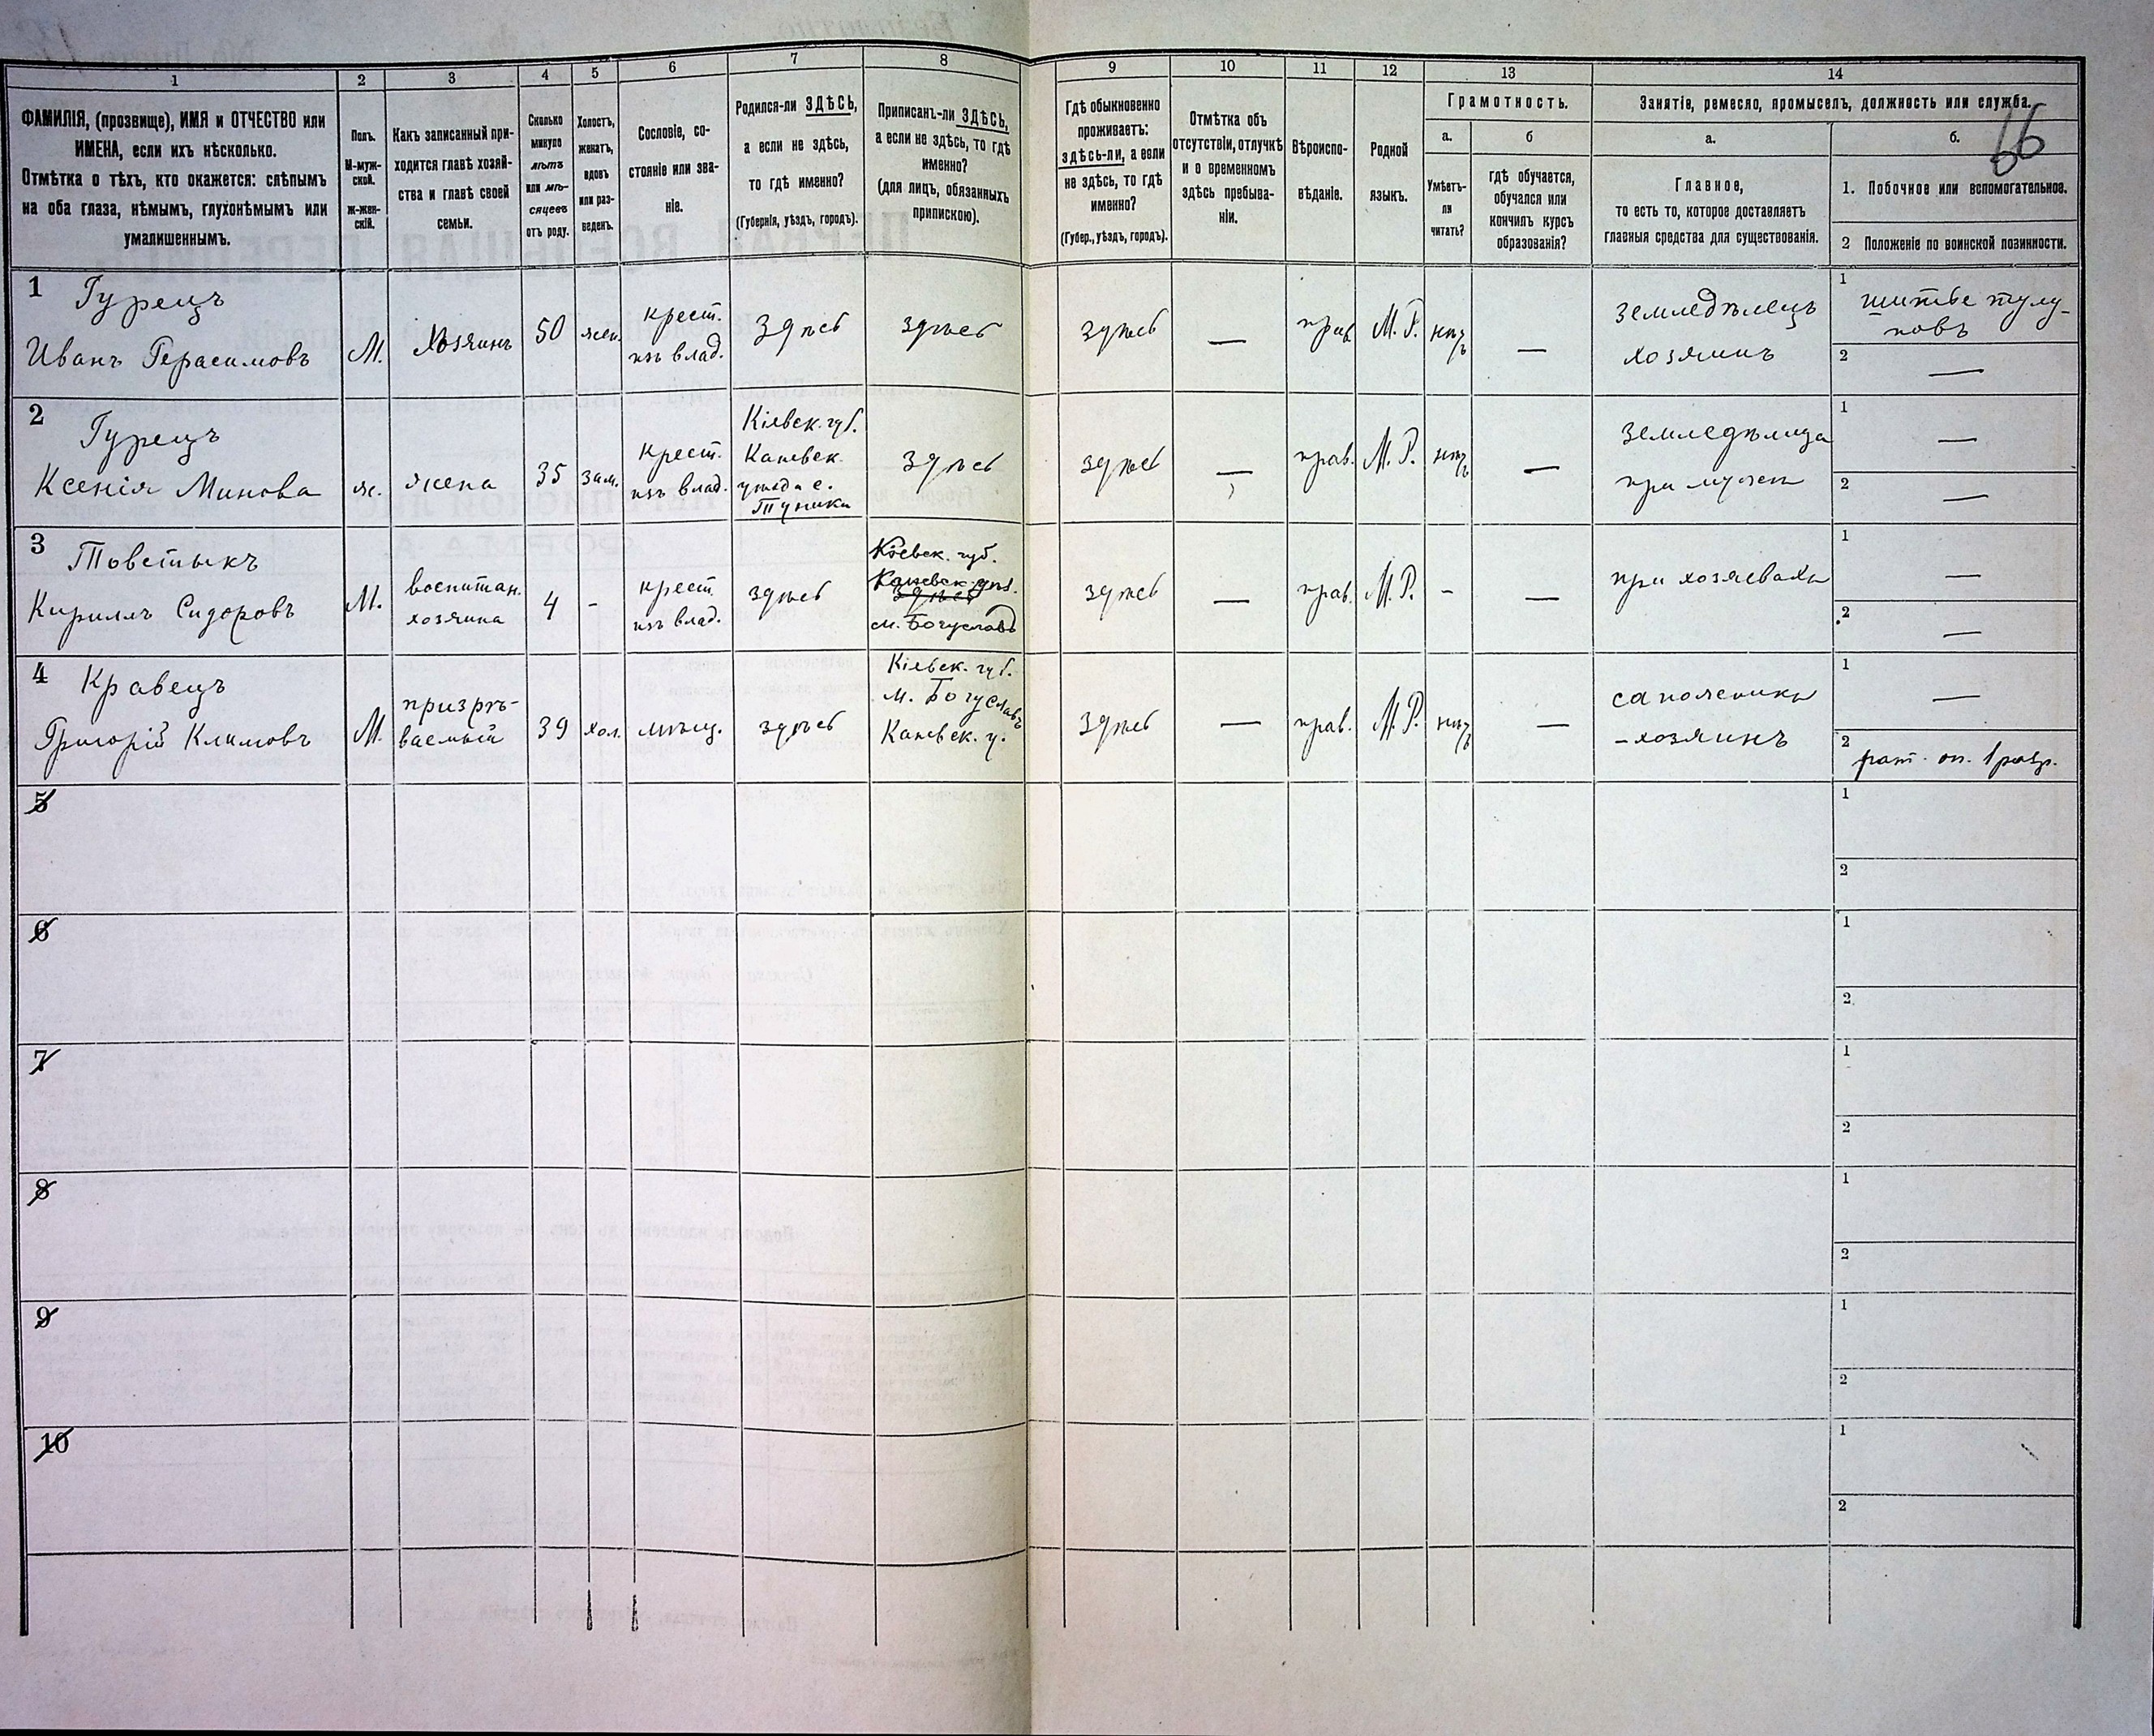 1 2 3 4 5 6 7 8 9 10 11 12 13 14
ФАМИЛІЯ, (прозвище), ИМЯ и ОТЧЕСТВО или
ИМЕНА, если ихъ нѣсколько.
Отмѣтка о тѣхъ, кто окажется: слѣпымъ
на оба глаза, нѣмымъ, глухонѣмымъ или
умалишеннымъ.
Полъ.
М-муж-
ской.
ж-жен-
скій.
Какъ записанный при-
ходится главѣ хозяй-
ства и главѣ своей
семьи.
Сколько
минуло
лѣтъ
или мѣ-
сяцевъ
отъ роду.
Холостъ,
женатъ,
вдовъ
или раз-
веденъ.
Сословіе, со-
стояніе или зва-
ніе.
Родился-ли ЗДѢСЬ,
а если не здѣсь,
то гдѣ именно?
(Губернія, уѣздъ, городъ).
Приписанъ-ли ЗДѢСЬ,
а если не здѣсь, то гдѣ
именно?
(для лицъ, обязанныхъ
припискою).
Гдѣ обыкновенно
проживаетъ:
здѣсь-ли, а если
не здѣсь, то гдѣ
именно?
(Губер., уѣздъ, городъ).
Отмѣтка объ
отсутствіи, отлучкѣ
и о временномъ
здѣсь пребыва-
ніи.
Вѣроиспо-
вѣданіе.
Родной
языкъ.
Грамотность.
а.
Умѣетъ-
ли
читать?
б
гдѣ обучается,
обучался или
кончилъ курсъ
образованія?
Занятіе, ремесло, промыселъ, должность или служба.
66
а.
Главное,
то есть то, которое доставляетъ
главныя средства для существованія.
б.
1. Побочное или вспомогательное.
2 Положеніе по воинской повинности.
1 Гурецъ
Иванъ Герасимовъ
М.
Хозяинъ
50
жен.
крест.
изъ влад.
Здѣсь
здѣсь
здѣсь
—
прав
М. Р.
нѣтъ
—
земледѣлецъ
хозяинъ
1 шитье тулу-
повъ
2 —
2 Гурецъ
Ксенія Минова
ж.
жена
35
зам.
крест.
изъ влад.
Кіевск. губ.
Каневск.
уѣзда с.
здѣсь
здѣсь
—
прав.
М. Р.
нѣтъ
—
земледѣлица
при мужѣ
1 —
2 —
3 Товстыкъ
Кириллъ Сидоровъ
М.
воспитан.
хозяина
4
-
крест
изъ влад.
здѣсь
Кіевск. губ.
Каневск. уѣз.
здѣсь
м. Богуславъ
здѣсь
—
прав.
М. Р.
-
—
при хозяевахъ
1 —
2 —
4 Кравецъ
Григорій Климовъ
М.
призрѣ-
ваемый
39
хол.
мѣщ.
здѣсь
Кіевск. губ.
м. Богуславъ
Каневск. у.
здѣсь
—
прав.
М. Р.
нѣтъ
—
сапожникъ
-хозяинъ
1 —
2 рат. оп. 1 разр.
5
1
2
6
1
2
7
1
2
8
1
2
9
1
2
10
1
2